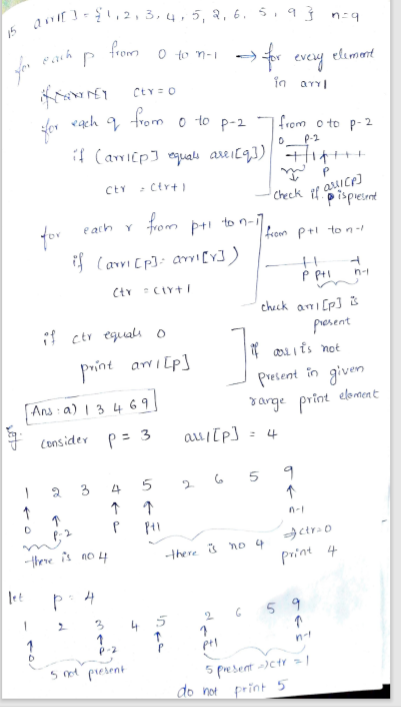 15 arr1[ ] = {1, 2, 3, 4, 5, 2, 6, 5, 9} n=9
for each p from 0 to n-1 → for every element in arr1
ctr = 0
for each q from 0 to p-2
if (arr1[p] equals arr1[q])
ctr = ctr+1
from 0 to p-2
0 p-2
p
check if arr1[p] is present
for each r from p+1 to n-1
if (arr1[p] = arr1[r])
ctr = ctr+1
from p+1 to n-1
p p+1 n-1
check arr1[p] is present
if ctr equals 0
print arr1[p]
if arr1 is not present in given range print element
Ans: a) 1 3 4 6 9
Eg: consider p = 3 arr1[p] = 4
1 2 3 4 5 2 6 5 9
0 p-2 p p+1 n-1
there is no 4 there is no 4 ⇒ ctr=0
print 4
let p = 4
1 2 3 4 5 2 6 5 9
0 p-2 p p+1 n-1
5 not present 5 present ⇒ ctr = 1
do not print 5